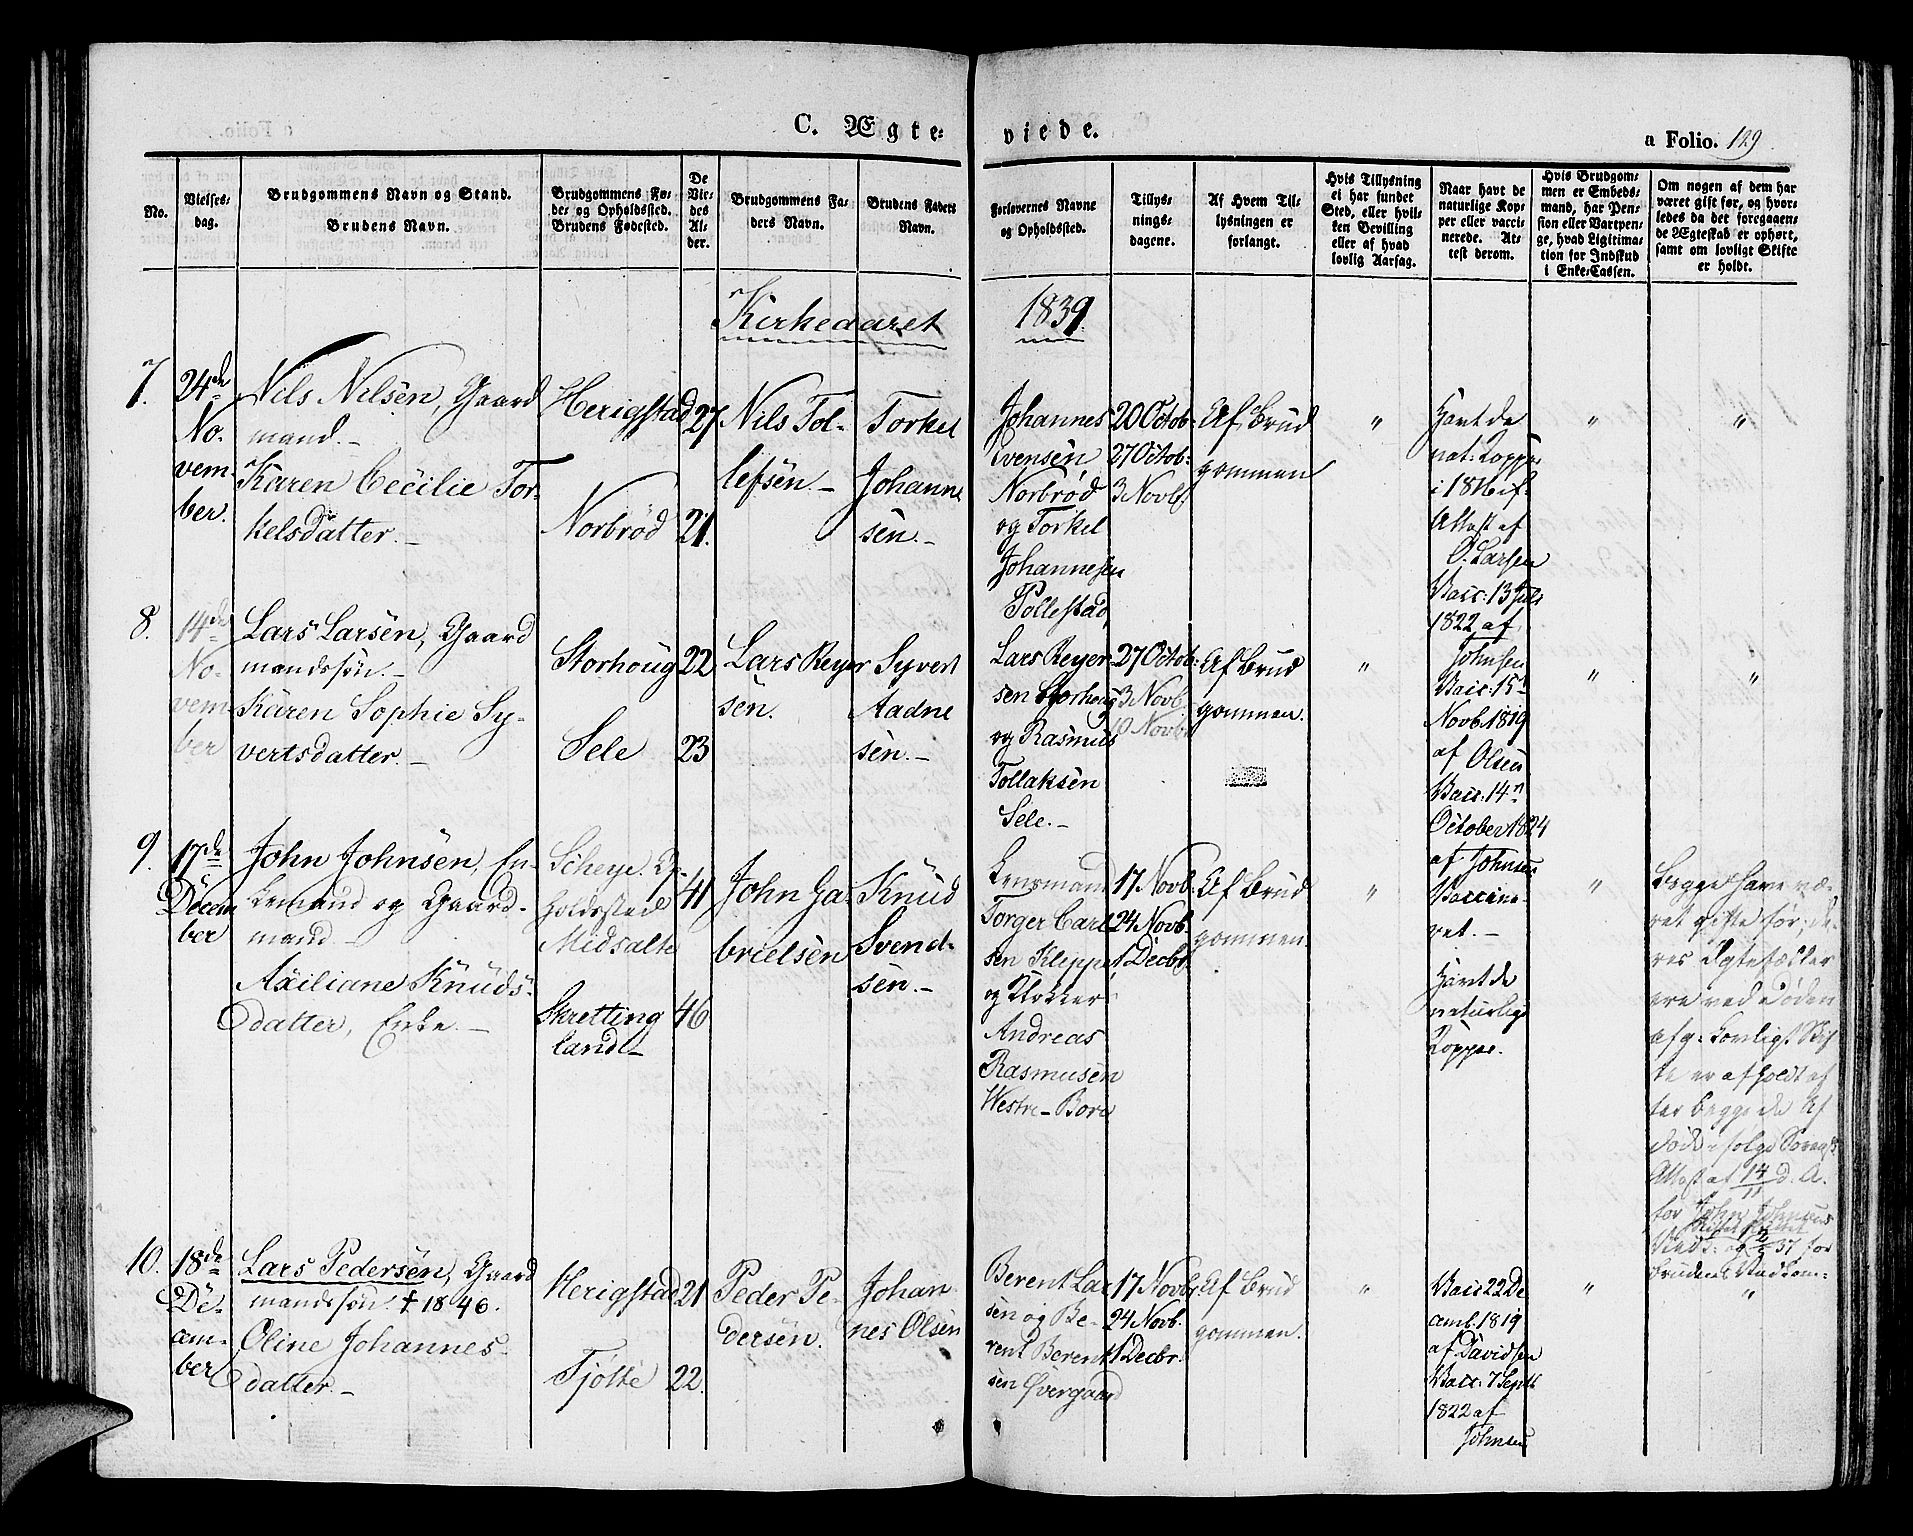 C. Ægte-
viede.
a Folio. 129
No.
Vielses-
dag.
Brudgommens Navn og Stand.
Brudens Navn.
Brudgommens Fø-
de- og Opholdssted.
Brudens Fødested.
De
Vie-
des
Al-
der.
Brudgommens Fa-
ders Navn.
Brudens Faders
Navn.
Forlovernes Navne
og Opholdssted.
Tillys-
nings-
dagene.
Af Hvem Til-
lysningen er
forlangt.
Hvis Tillysning
ei har fundet
Sted, eller hvil-
ken Bevilling
eller af hvad
lovlig Aarsag.
Naar havt de
naturlige Kop-
per eller vacci-
nerede. At-
test derom.
Hvis Brudgom-
men er Embeds-
mand, har Pen-
sion eller Vartpen-
ge, hvad Ligitima-
tion for Indskud
i Enke-Cassen.
Om nogen af dem har
været gift før, og hvor-
ledes da det foregaaen-
de Ægteskab er ophørt,
samt om lovligt Skifte
er holdt.
Kirkeaaret
1839.
7.
24de
No-
vem-
ber.
Nils Nilsen, Gaard
mand.-
Karen Cecilie Tor-
kelsdatter.-
Herigstad
Norbrød
27
21.
Nils Tol-
lefsen.-
Torkel
Johanne
sen.-
Johannes
Evensen
Norbrød
og Torkel
Johannesen
Pollestad
20 Octob:
27 Octob:
3 Novb.
Af Brud
gommen
"
Havt de
nat: Kopper
Attest af
O. Larsen
Vacc: 13 Juli
1822 af
Johnsen
"
"
8.
14de
No-
vem-
ber
Lars Larsen, Gaard
mandssøn.-
Karen Sophie Sy-
vertsdatter.-
Storhoug
Sele
22
23
Lars Reyer
sen.
Syvert
Aadne
sen.-
Lars Reyer-
sen Storhoug
og Rasmus
Tollaksen
Sele.-
27 Octob:
3 Novb
10 Novb.
Af Brud
gommen.
"
Vacc: 15
Novb. 1819
af Olsen
Vacc: 14
October 1824
af Johnsen
"
"
9.
17de
Decem
ber
John Johnsen, En-
kemand og Gaard-
mand-
Axiliane Knuds-
datter, Enke.-
Scheye. Op-
holdssted
Midsalte
Skretting
land-
41
46
John Ga
brielsen
Knud
Svend-
sen.-
Lensmand
Torger Carl
sen Kleppe
og Klokker
Andreas
Rasmusen
Westre-Bore
17 Novb.
24 Novb.
1 Decbr.
Af Brud
gommen.
"
Vaccine-
ret.-
Havt de
naturlige
Kopper.
"
Begge have væ-
ret gifte før; de-
res Ægtefæller
ere ved Døden
afg: Lovligt Skif
te er afholdt ef
ter begge de Af
døde ifølge Sorens:
Attest af 14/11 d. A.
for John Johnsens
37 for
Brudens Vedkom-
10.
18de
De-
cem-
ber
Lars Pedersen, Gaard
mandssøn. † 1846.
Oline Johannes-
datter.-
Herigstad
Tjøtte
21
22.
Peder Pe-
dersen.
Johan
nes Olsen
Berent Lar
sen og Be-
rent Berent
sen Øvergaard
17 Novb.
24 Novb.
1 Decbr.
Af Brud
gommen.
"
Vacc 22 De
cemb. 1819
af Davidsen
Vacc: 7 Septb
1822 af
Johnsen
"
"